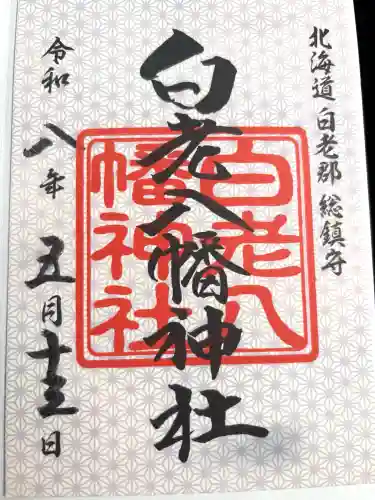 北海道白老郡総鎮守
白老八幡神社
白老八
幡神社
令和八年五月十五日